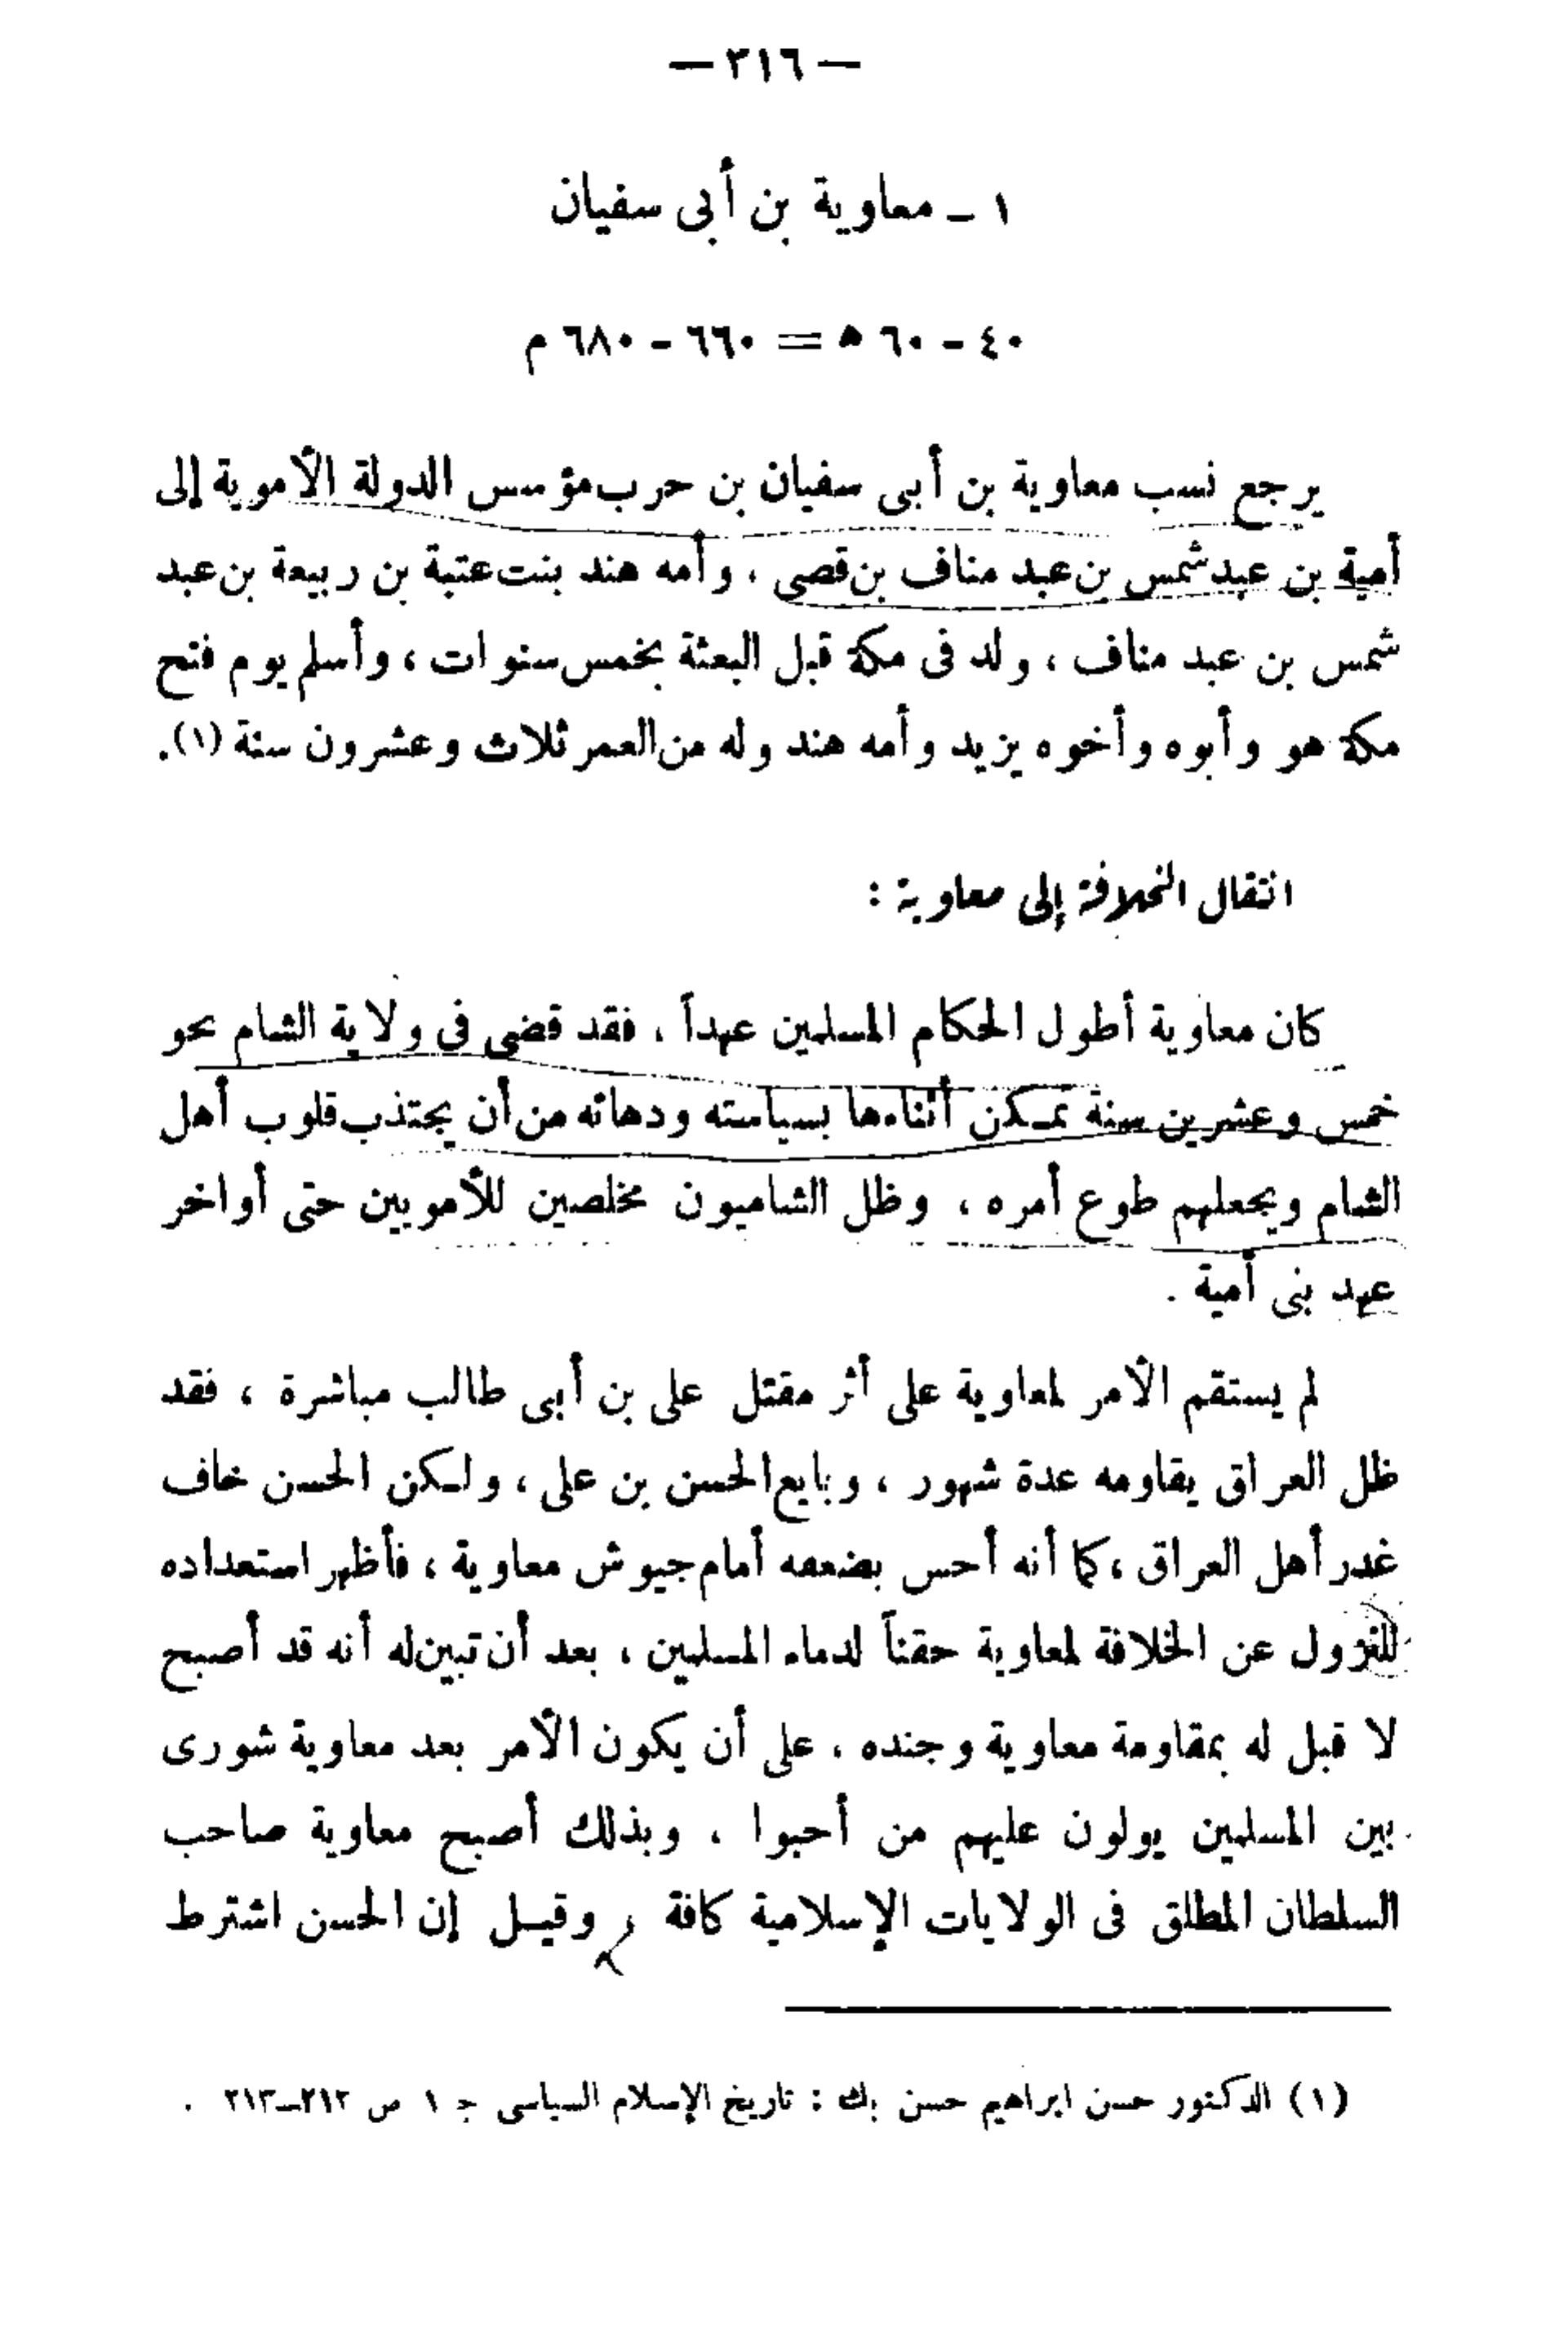 — ٣١٦ —
١ ـ معاوية بن أبى سفيان
٤٠ - ٦٠ ه = ٦٦٠ - ٦٨٠ م
يرجع نسب معاوية بن أبى سفيان بن حرب مؤسس الدولة الأموية إلى
أمية بن عبد شمس بن عبد مناف بن قصى ، وأمه هند بنت عتبة بن ربيعة بن عبد
شمس بن عبد مناف ، ولد فى مكة قبل البعثة بخمس سنوات ، وأسلم يوم فتح
مكة هو وأبوه وأخوه يزيد وأمه هند وله من العمر ثلاث وعشرون سنة (١) .
انتقال الخلافة إلى معاوية :
كان معاوية أطول الحكام المسلمين عهداً ، فقد قضى فى ولاية الشام نحو
خمس وعشرين سنة تمكن أثناءها بسياسته ودهائه من أن يجتذب قلوب أهل
الشام ويجعلهم طوع أمره ، وظل الشاميون مخلصين للأمويين حتى أواخر
عهد بنى أمية .
لم يستقم الأمر لمعاوية على أثر مقتل على بن أبى طالب مباشرة ، فقد
ظل العراق يقاومه عدة شهور ، وبايع الحسن بن على ، ولكن الحسن خاف
غدر أهل العراق ، كما أنه أحس بضعفه أمام جيوش معاوية ، فأظهر استعداده
للنزول عن الخلافة لمعاوية حقناً لدماء المسلمين ، بعد أن تبين له أنه قد أصبح
لا قبل له بمقاومة معاوية وجنده ، على أن يكون الأمر بعد معاوية شورى
بين المسلمين يولون عليهم من أحبوا ، وبذلك أصبح معاوية صاحب
السلطان المطلق فى الولايات الإسلامية كافة ، وقيل إن الحسن اشترط
(١) الدكتور حسن ابراهيم حسن بك : تاريخ الإسلام السياسى ج ١ ص ٢١٢—٢١٣ .